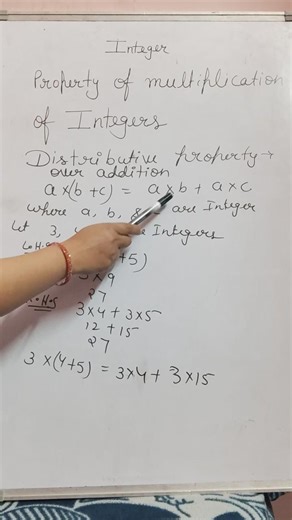 Integer
Property of multiplication
of Integers
Distributive property →
over addition
a×(b+c) = a×b + a×c
where a, b, are Integer
Let 3, Integers
L.H.S +5)
3×9
27
R.H.S
3×4 + 3×5
12 + 15
27
3×(4+5) = 3×4 + 3×15